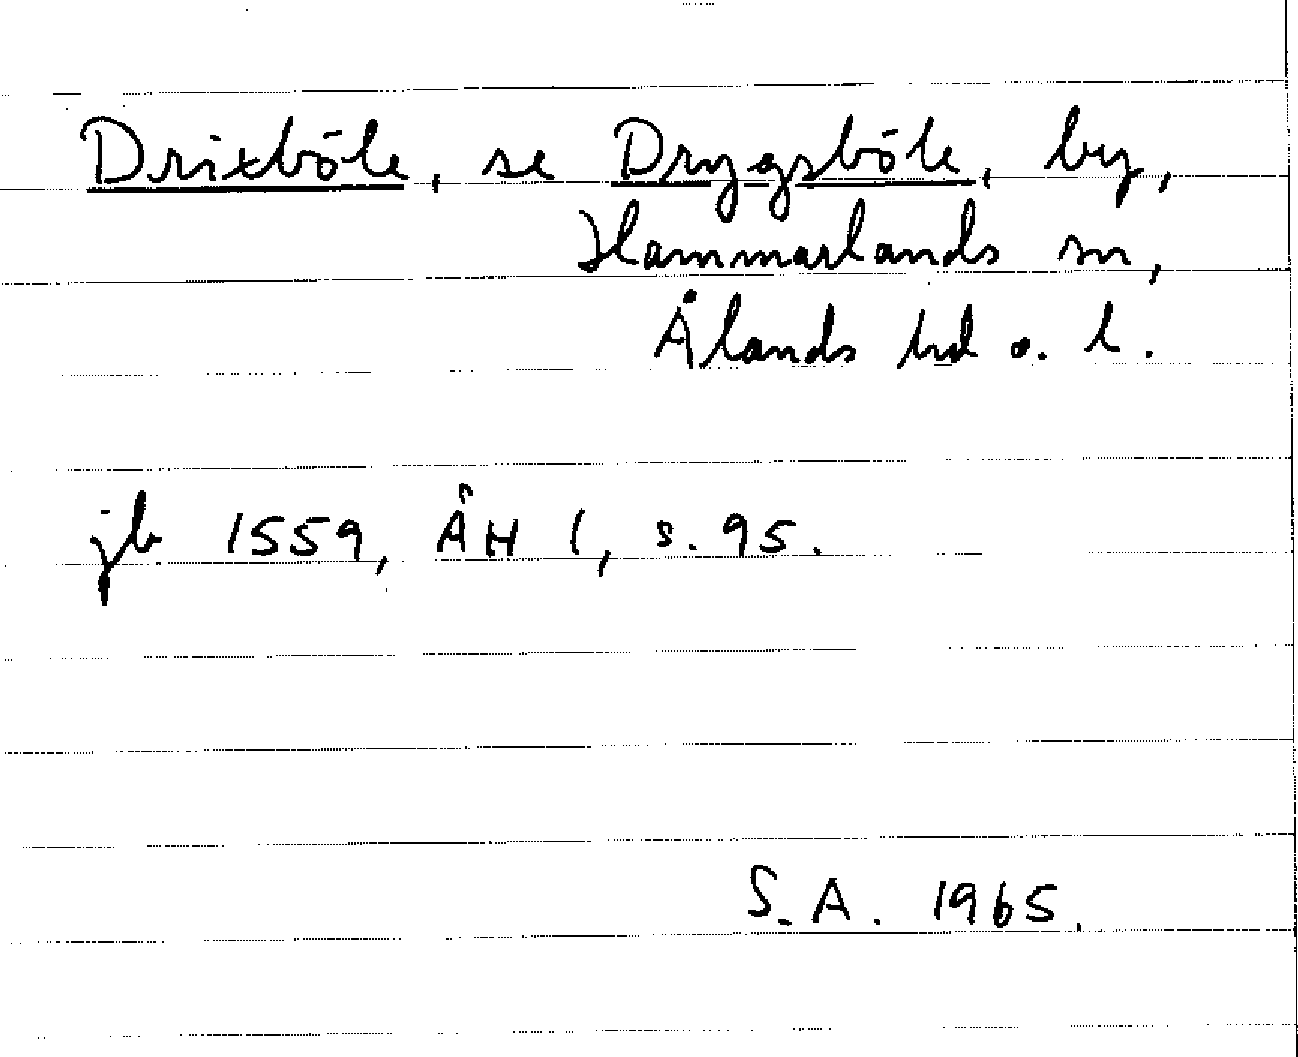 Drixböle, se Drygsböle, by,
Hammarlands sn,
Ålands hd o. l.
jb 1559, ÅH 1, s. 95.
S.A. 1965.